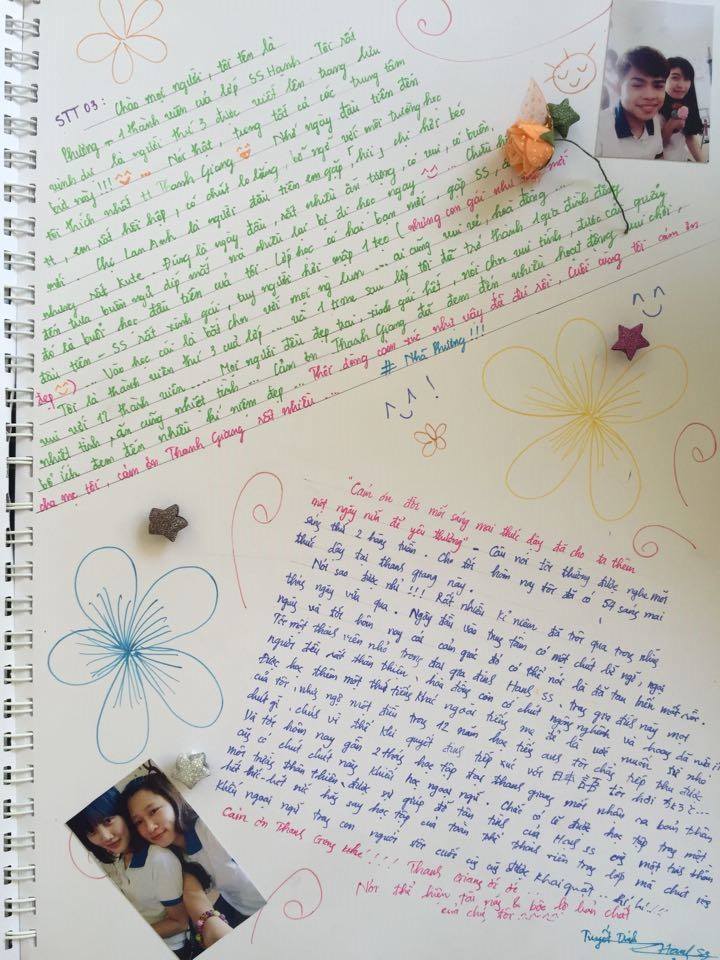 STT 03: Chào mọi người, tôi tên là
Phương - 1 thành viên của lớp SS Hanh. Tôi rất
vinh dự là người thứ 3 được viết lên trang lưu
bút này!!! ... Nói thật, trong tất cả các trung tâm
tôi thích nhất # Thanh Giang ... Nhớ ngày đầu tiên đến
#, em rất hồi hộp, có chút lo lắng, bỡ ngỡ với môi trường học
mới. Chị Lan Anh là người đầu tiên em gặp "hii" chị hơi béo
nhưng rất kute. Đúng là ngày đầu, rất nhiều ấn tượng, có vui, có buồn,
đến trưa buồn ngủ díp mắt mà chiều lại bị đi học ngay ... Chiều
đó là buổi học đầu tiên của tôi. Lớp học có hai bạn mới, gặp SS,
đầu tiên - SS rất xinh gái, tuy người hơi mập 1 tẹo (nhưng con gái như mới
đẹp) ... Vào học cái là bắt chện với mọi ng lun ... ai cũng vui vẻ, hoà đồng ...
Tôi là thành viên thứ 3 của lớp ... và 1 trong sau lớp tôi đã trở thành 1 gia đình đông
vui với 12 thành viên ... Mọi người đều đẹp trai, xinh gái hết, nói chện vui tính,
nhiệt tình, ăn cũng nhiệt tình ... Cảm ơn Thanh Giang đã đem đến nhiều hoạt động vui chơi,
bổ ích đem đến nhiều kỉ niệm đẹp ... Thôi dòng cảm xúc như vậy đã đủ rồi, cuối cùng tôi cảm ơn
cha mẹ tôi, cảm ơn Thanh Giang rất nhiều ... # Nhã Phương!!!
"Cảm ơn đời mỗi sáng mai thức dậy đã cho ta thêm
một ngày nữa để yêu thương" - Câu nói tôi thường được nghe mỗi
sáng thứ 2 hàng tuần. Cho tới hôm nay tôi đã có 59 sáng mai
thức dậy tại thanh giang này.
Nói sao được nhỉ!!! Rất nhiều kỉ niệm đã trôi qua trong những
tháng ngày vừa qua. Ngày đầu vào trung tâm có một chút bỡ ngỡ, ngại
ngùng và tới hôm nay cái cảm giác đó có thể nói là đã tan biến mất rồi.
Tôi một thành viên nhỏ trong đại gia đình Hanh SS, trong gia đình này mọi
người đều rất thân thiện, hoà đồng còn có chút nghịch ngợm và
Được học thêm một thứ tiếng khác ngoài tiếng mẹ đẻ là ước muốn
của tôi, nhưng một điều trong 12 năm học tiếng anh tôi chẳng tiếp thu được
chút gì, chính vì thế khi quyết định tiếp xúc với 日本語 tôi hơi ...
Và tới hôm nay gần 2 tháng học tập tại thanh giang mới nhận ra bản thân
cũng có chút chút năng khiếu học ngoại ngữ. Chắc có lẽ được học tập trong một
môi trường thân thiện, được sự giúp đỡ tận tình của Hanh SS cùng một tinh thần
hết mức hăng say học tập của toàn thể thành viên trong lớp mà chút
khiếu ngoại ngữ trong con người tôi cuối cùng cũng được khai quật ... hi hi!!!
Cảm ơn Thanh Giang nhé!!!! Thanh Giang ơi ới ...
Nói thế hiện tại này là bộc lộ bản chất
của chúng tôi ^^^
Hanh SS